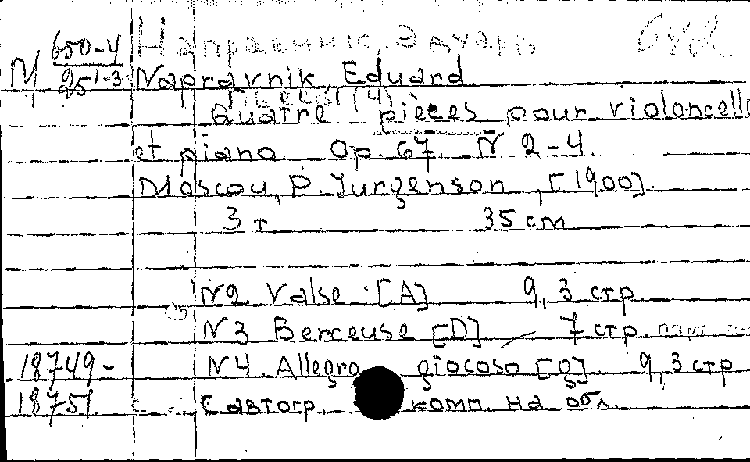 М 650-4 Направник, Эдуард
95 1-3 Napravnik, Eduard
Quatre pièces pour violoncelle
et piano Op 67 N 2-4.
Moscou, P. Jurgenson, [1900].
3 т 35 cm
N2 Valse [A] 9, 3 стр
N3 Berceuse [D] - 7 стр.
18749- N4 Allegro giocoso [g] 9, 3 стр
18751 С автогр. комп. на обл.